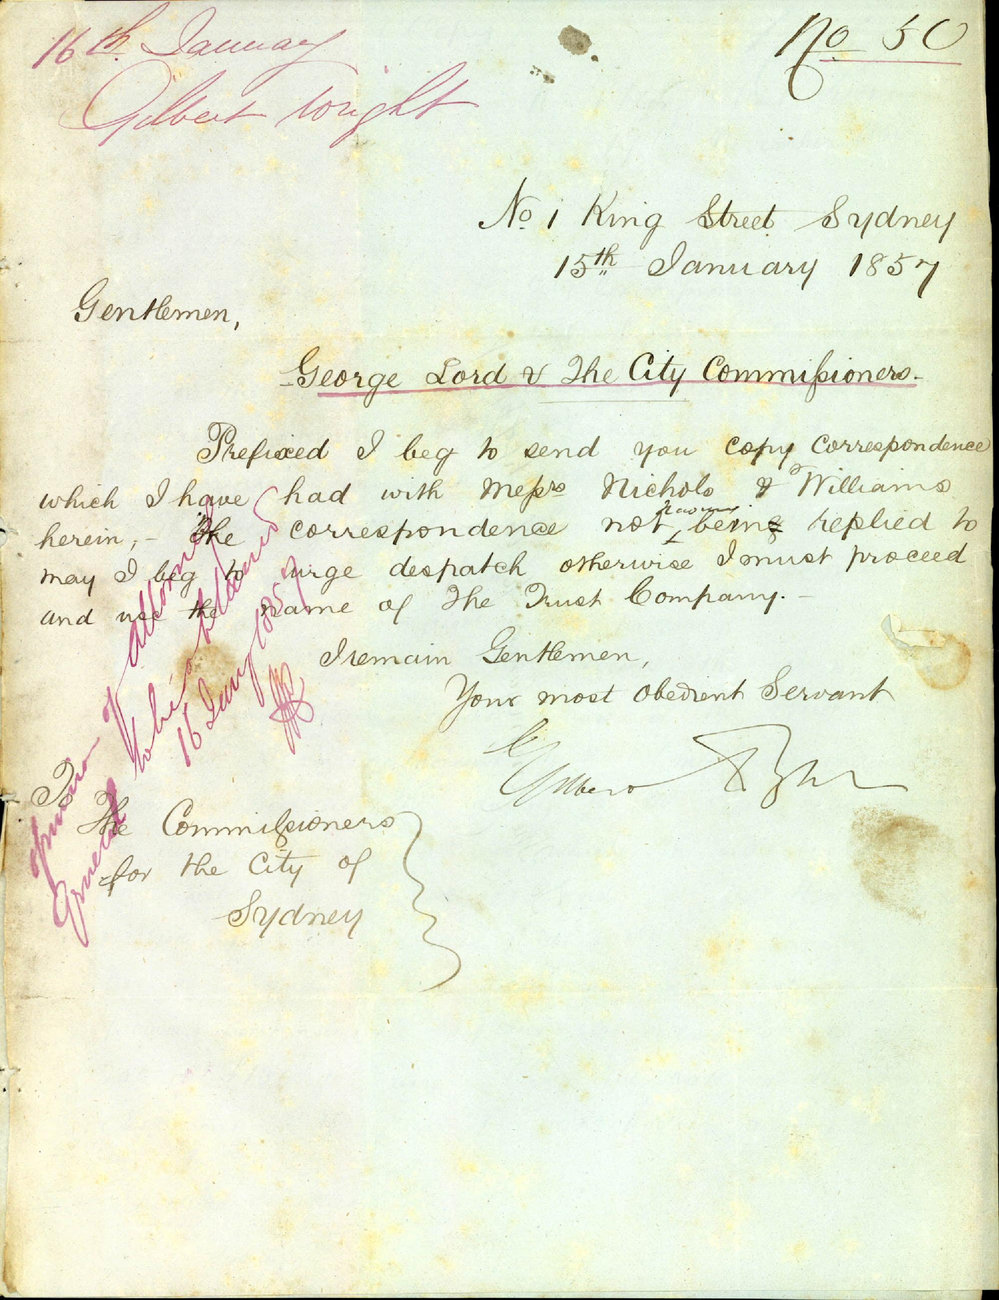 16th January
Gilbert Wright
No 50
No 1 King Street Sydney
15th January 1857
Gentlemen,
George Lord & The City Commissioners.
Prefixed I beg to send you copy correspondence
which I have had with Messrs Nichols & Williams
herein, - The correspondence not being replied to
may I beg to urge despatch otherwise I must proceed
and use the name of The Trust Company. -
I remain Gentlemen,
Your most obedient Servant
Gilbert Wright
To
The Commissioners
for the City of
Sydney
opinion of Attorney
General to be obtained
16 Jany 1857